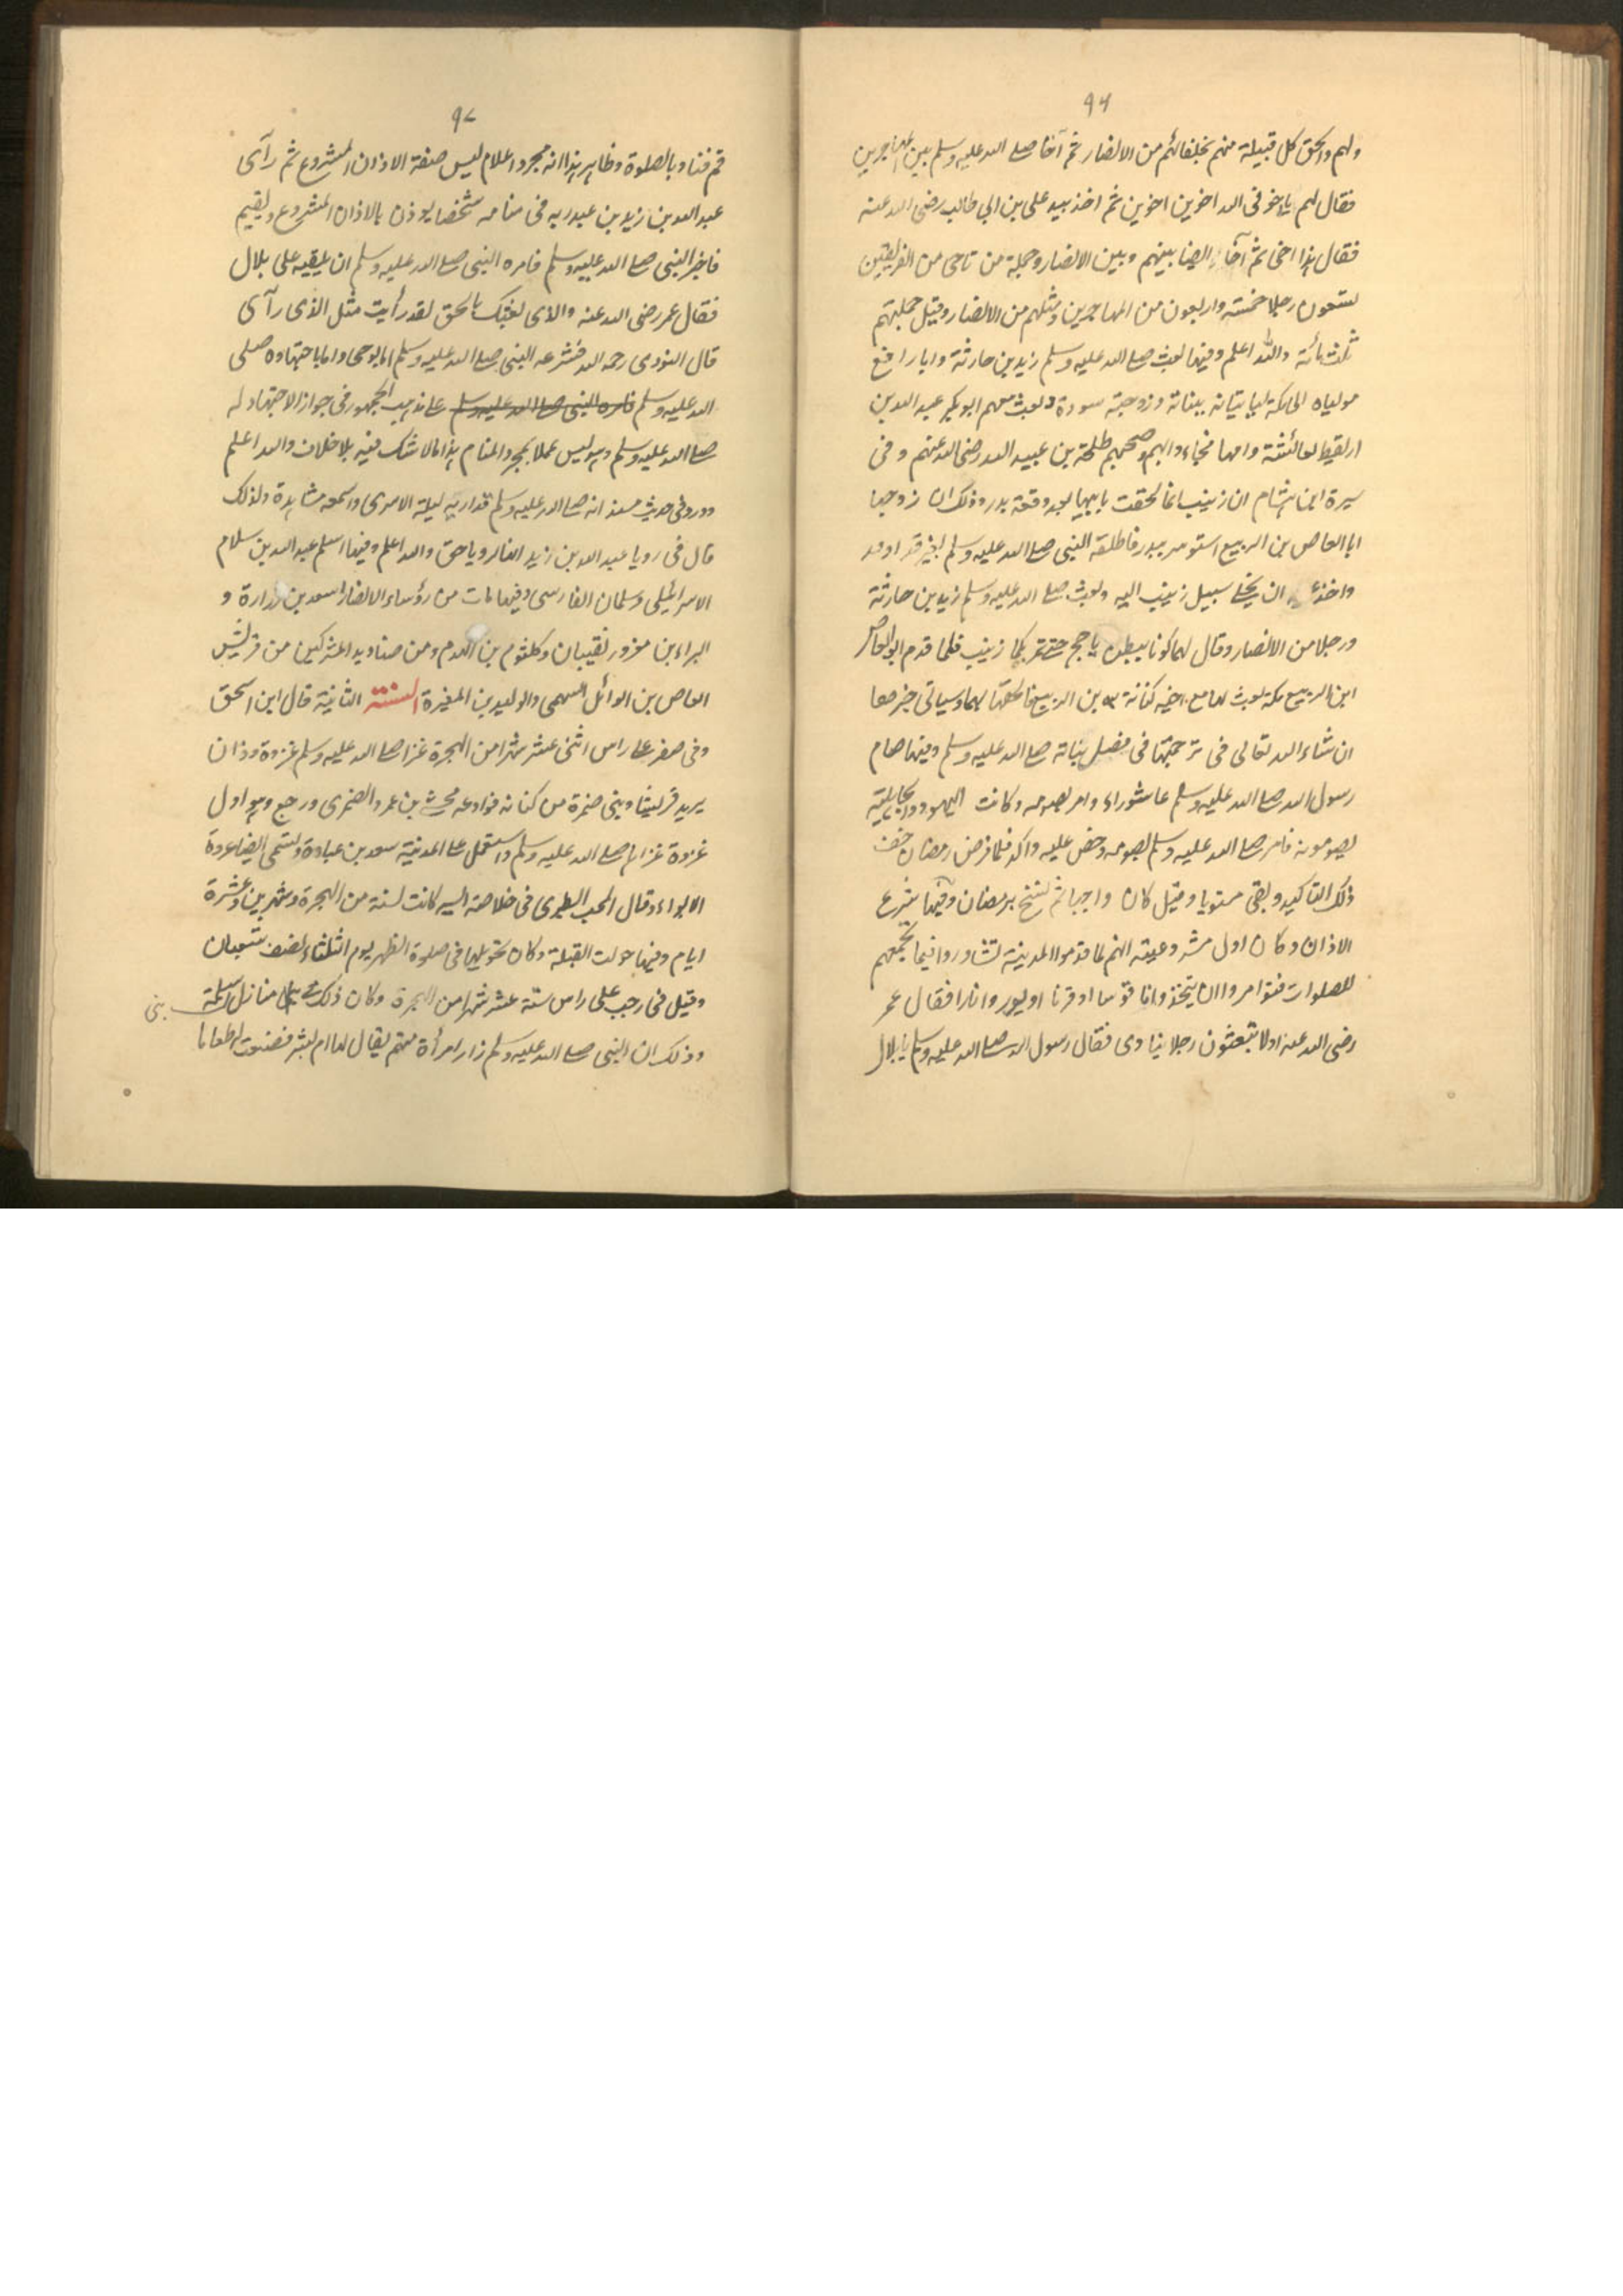 ٩٦
ولهم والحق كل قبيلة منهم بحلفائهم من الانصار ثم آخا صلى الله عليه وسلم بين المهاجرين
فقال لهم تاخو فى الله اخوين اخوين ثم اخذ بيد على بن ابي طالب رضى الله عنه
فقال هذا اخى ثم آخا ايضا بينهم وبين الانصار وجملة من تاخى من الفريقين
تسعون رجلا خمسة واربعون من المهاجرين ومثلهم من الانصار وقيل جملتهم
ثلثمائة والله اعلم وفيها بعث صلى الله عليه وسلم زيد بن حارثة وابا رافع
مولياه الى مكة لياتيانه ببناته وزوجته سودة وبعث معهم ابو بكر عبد الله بن
اريقيط لعائشة وامها فجاءوا بهم وصحبهم طلحة بن عبيد الله رضى الله عنهم وفى
سيرة ابن هشام ان زينب انما لحقت بابيها بعد وقعة بدر وذلك ان زوجها
ابا العاص بن الربيع استوسر ببدر فاطلقه النبى صلى الله عليه وسلم بغير فداء وقد
واخذ عليه ان يخلى سبيل زينب اليه وبعث صلى الله عليه وسلم زيد بن حارثة
ورجلا من الانصار وقال لهما كونا ببطن ياجج حتى تمر بكما زينب فلما قدم ابو العاص
ابن الربيع مكة بعث لها مع اخيه كنانة بن الربيع فالحقها بهما وسياتى خبرها
ان شاء الله تعالى فى ترجمتها فى فصل بناته صلى الله عليه وسلم وفيها صام
رسول الله صلى الله عليه وسلم عاشوراء وامر بصومه وكانت اليهود والجاهلية
يصومونه فامر صلى الله عليه وسلم بصومه وحض عليه واكد فلما فرض رمضان خفف
ذلك التاكيد وبقى مستويا وقيل كان واجبا ثم نسخ برمضان وفيها شرع
الاذان وكان اول مشروعيته انهم لما قدموا المدينة تشاوروا فيما يجمعهم
للصلوات فتوامروا ان يتخذوا ناقوسا او قرنا او يوروا نارا فقال عمر
رضى الله عنه اولا تبعثون رجلا ينادى فقال رسول الله صلى الله عليه وسلم يا بلال
٩٧
قم فناد بالصلوة وظاهر هذا انه مجرد اعلام ليس صفة الاذان المشروع ثم رآى
عبد الله بن زيد بن عبد ربه فى منامه شخصا يوذن بالاذان المشروع ويقيم
فاخبر النبى صلى الله عليه وسلم فامره النبى صلى الله عليه وسلم ان يلقيه على بلال
فقال عمر رضى الله عنه والذى بعثك بالحق لقد رأيت مثل الذى رآى
قال النووى رحمه الله فشرعه النبى صلى الله عليه وسلم اما بوحى واما باجتهاده صلى
الله عليه وسلم فامره النبى صلى الله عليه وسلم على مذهب الجمهور فى جواز الاجتهاد له
صلى الله عليه وسلم وهو ليس عملا بمجرد المنام هذا مالا شك فيه بلا خلاف والله اعلم
وورد فى حديث مسند انه صلى الله عليه وسلم قد اريه ليلة الاسرى واسمعه مشاهدة ولذلك
قال فى رويا عبد الله بن زيد انها لرويا حق والله اعلم وفيها اسلم عبد الله بن سلام
الاسرائيلى وسلمان الفارسى وفيها مات من رؤساء الانصار اسعد بن زرارة و
البراء بن معرور نقيبان وكلثوم بن الهدم ومن صناديد المشركين من قريش
العاص بن الوائل السهمى والوليد بن المغيرة السنة الثانية قال ابن اسحق
وفى صفر على راس اثنى عشر شهرا من الهجرة غزا صلى الله عليه وسلم غزوة ودان
يريد قريشا وبنى ضمرة من كنانة فوادعه مخشى بن عمرو الضمرى ورجع وهو اول
غزوة غزاها صلى الله عليه وسلم واستعمل على المدينة سعد بن عبادة وتسمى ايضا غزوة
الابواء وقال المحب الطبرى فى خلاصة السير كانت لسنة من الهجرة وشهرين وعشرة
ايام وفيها حولت القبلة وكان تحويلها فى صلوة الظهر يوم الثلثاء نصف شعبان
وقيل فى رجب على راس ستة عشر شهرا من الهجرة وكان ذلك فى منازل سلمة
بنى
وذلك ان النبى صلى الله عليه وسلم زار امرأة منهم يقال لها ام بشر فصنعت لهم طعاما